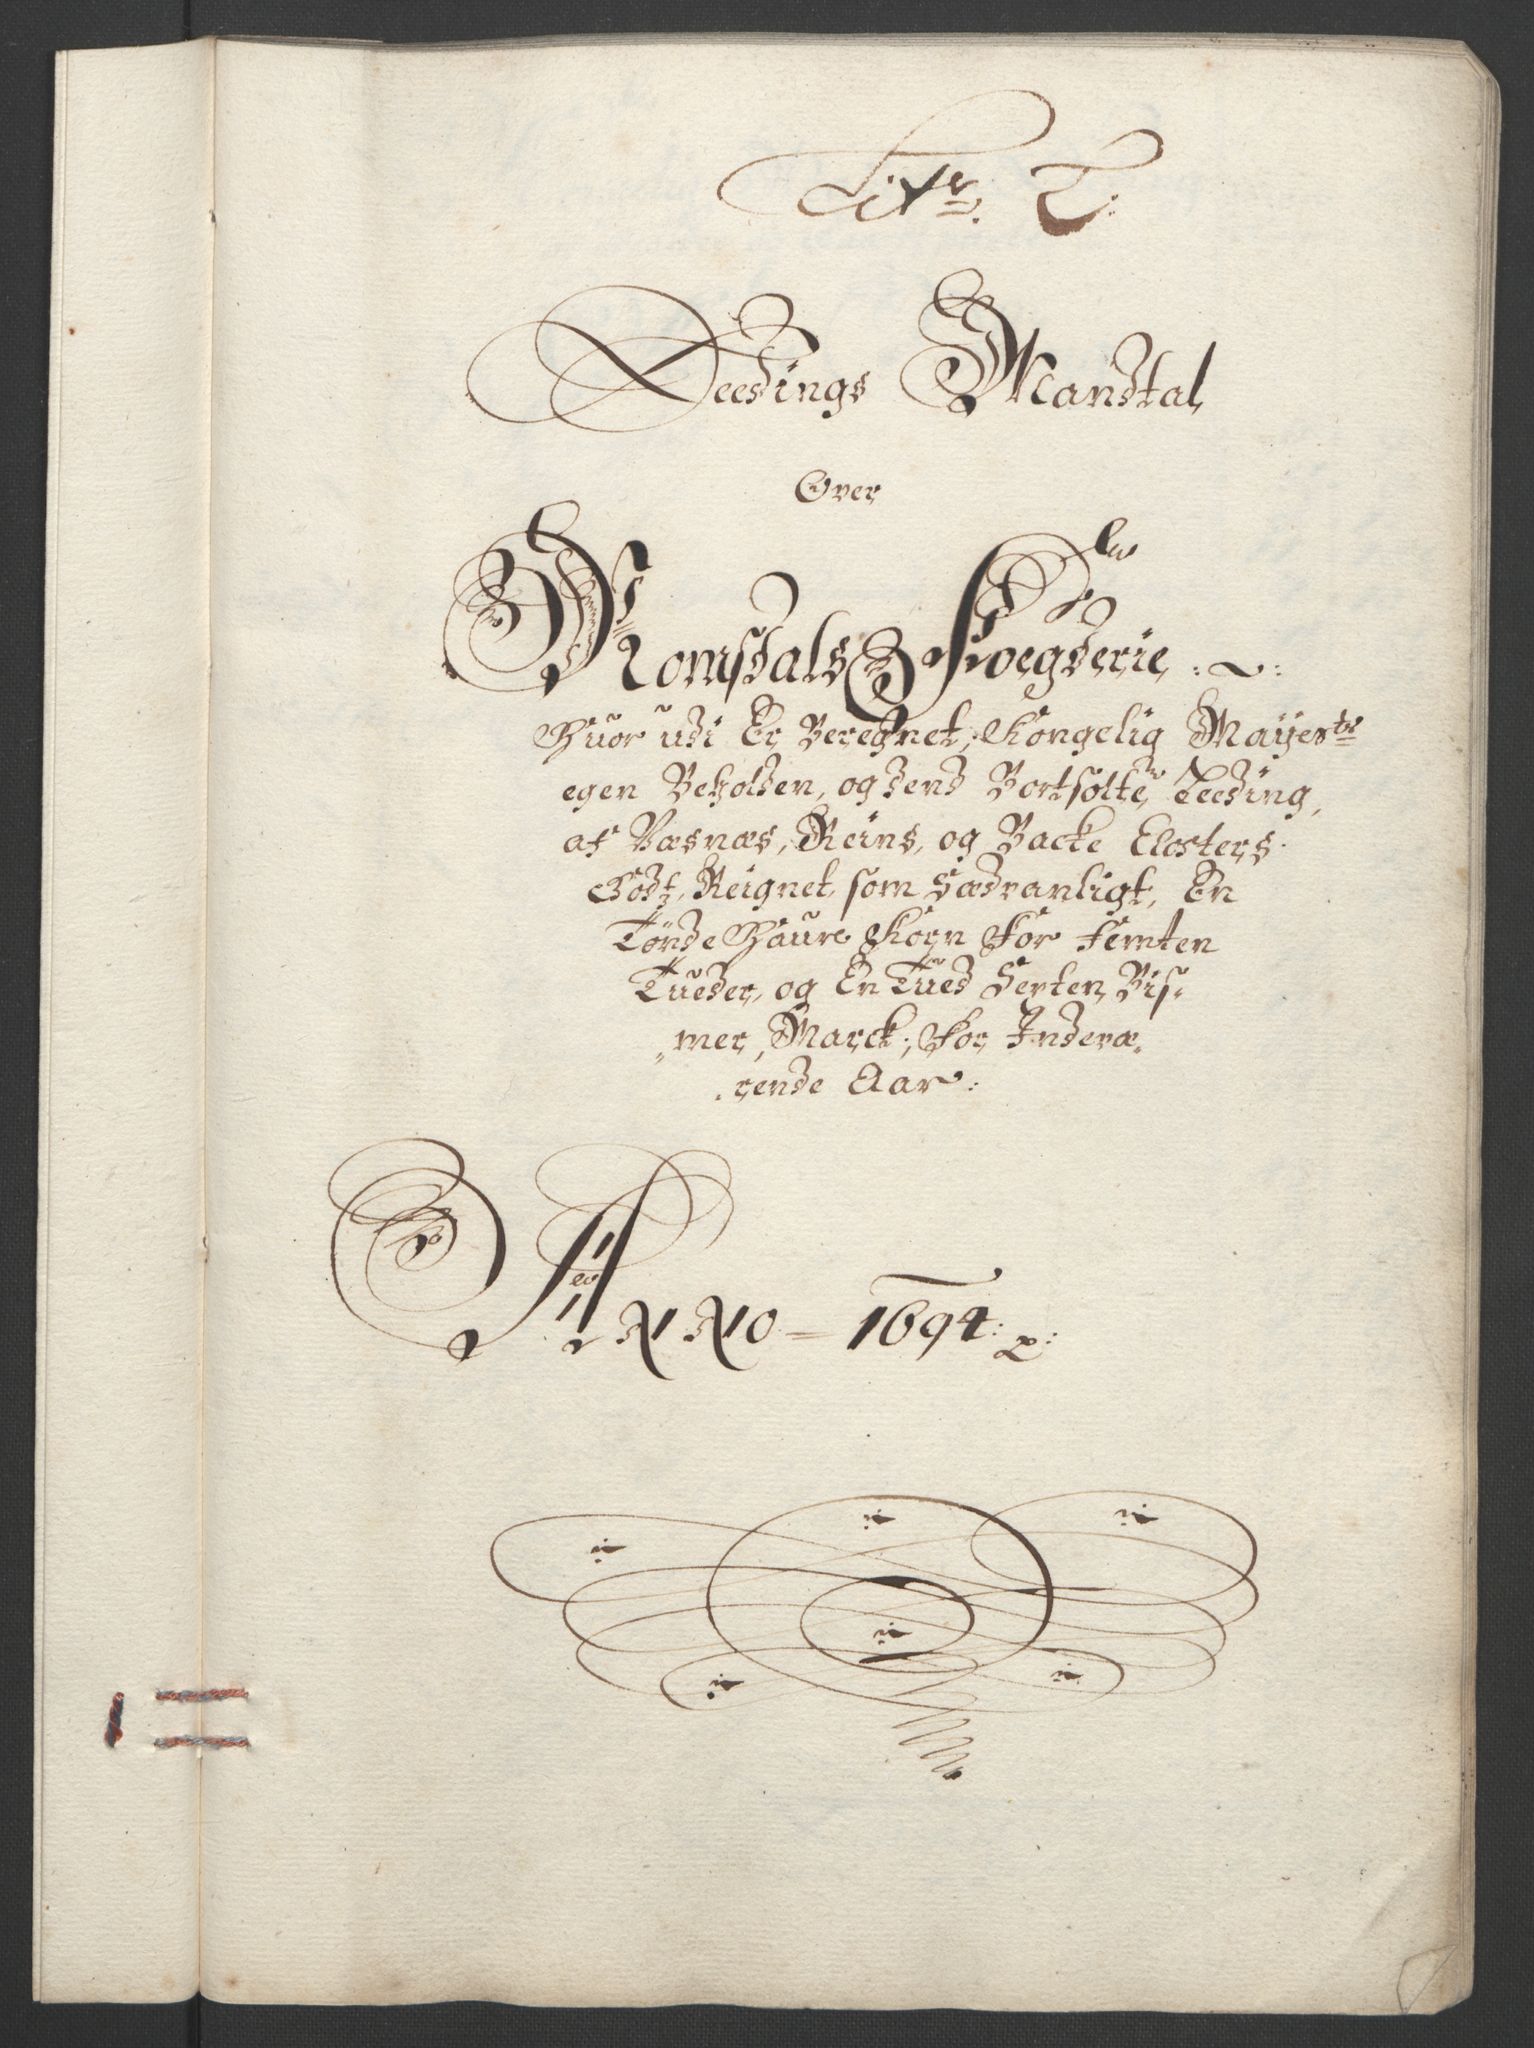 Litr. T:
Leedings Mandtal
Over
Romsdals Foegderie
Huor udi Er Beregnet, Kongelig Mayestz
egen Beholden, og dend Bortsolte Leeding,
af Væsnæs, Reins, og Backe Closters
Godtz, Reignet, som Sædvanligt, En
Tønde Haure Korn For Femten
Tueder, og En Tued Serten Bis-
mer, Marck, For Inderæ
rende Aar:
ANNO - 1694: